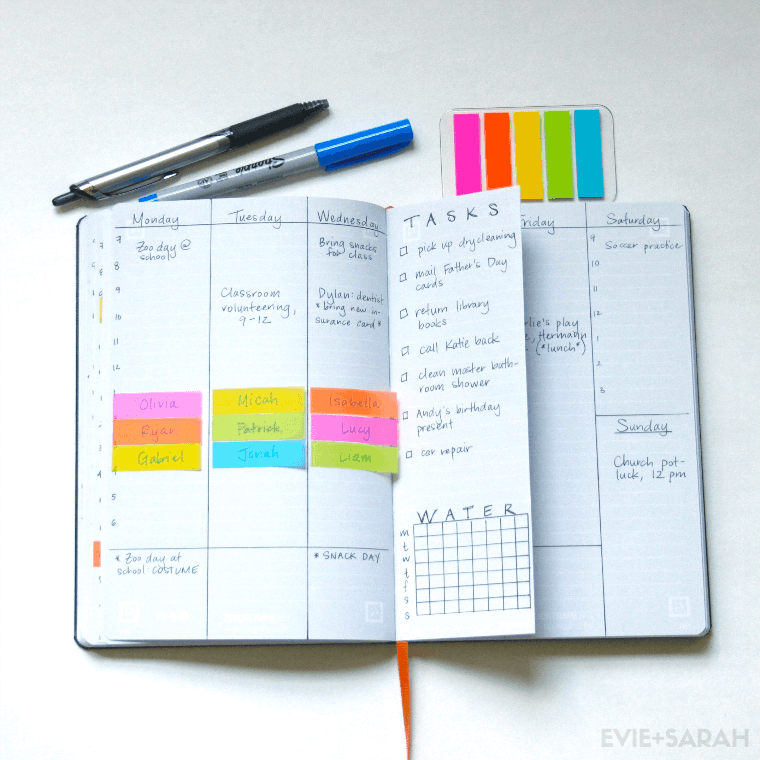 Sharpie
Monday
7
Zoo day @
school
8
9
10
11
12
1
Olivia
Ryan
Gabriel
4
5
6
* Zoo day at
school: COSTUME
Tuesday
Classroom
volunteering,
9-12
Micah
Patrick
Josiah
Wednesday
Bring snacks
for class
Dylan: dentist
*bring new in-
surance card*
Isabella
Lucy
Liam
* SNACK DAY
TASKS
pick up drycleaning
mail Father's Day
cards
return library
books
call Katie back
clean master bath-
room shower
Andy's birthday
present
car repair
WATER
m
t
w
t
f
s
s
Friday
play
Hermann
(*lunch*)
Saturday
9
Soccer practice
10
11
12
1
2
3
Sunday
Church pot-
luck, 12 pm
EVIE+SARAH